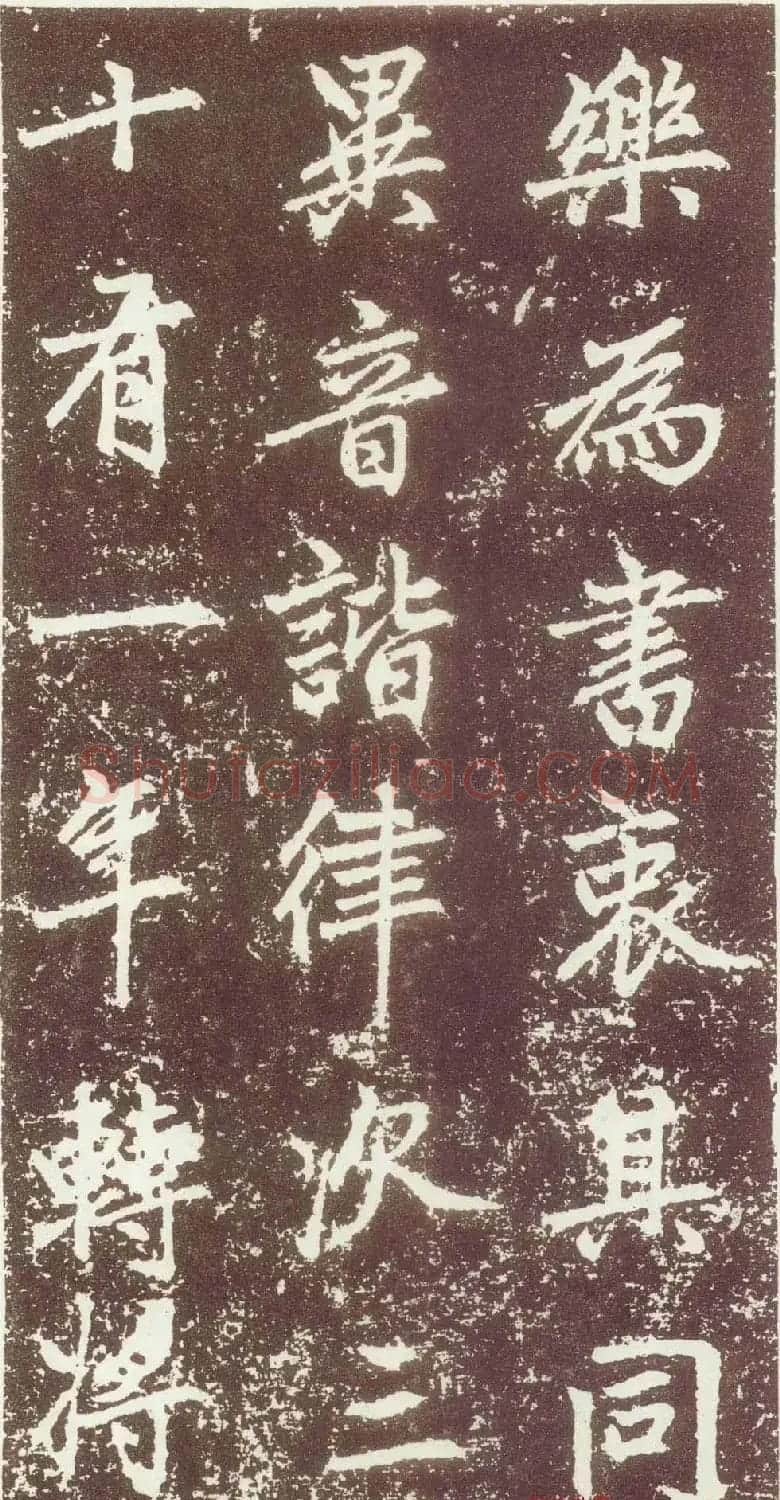 樂為書衷其同
異音諧律次三
十有一年轉將
Shufaziliao.COM